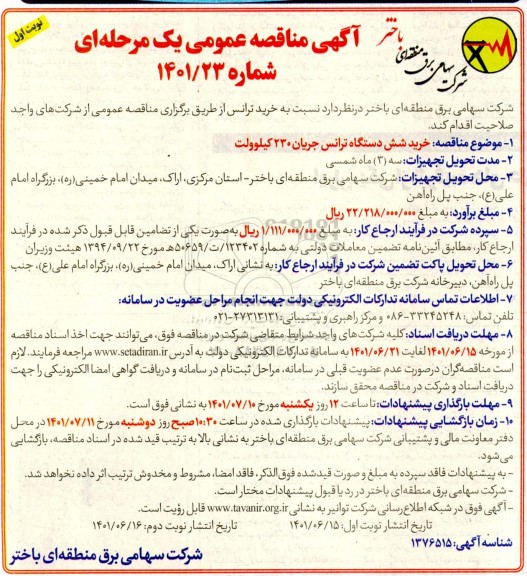 نوبت اول
آگهی مناقصه عمومی یک مرحله‌ای
شماره ۱۴۰۱/۲۳
شرکت سهامی برق منطقه‌ای باختر
شرکت سهامی برق منطقه‌ای باختر درنظردارد نسبت به خرید ترانس از طریق برگزاری مناقصه عمومی از شرکت‌های واجد
صلاحیت اقدام کند.
۱- موضوع مناقصه: خرید شش دستگاه ترانس جریان ۲۳۰ کیلوولت
۲- مدت تحویل تجهیزات: سه (۳) ماه شمسی
۳- محل تحویل تجهیزات: شرکت سهامی برق منطقه‌ای باختر- استان مرکزی، اراک، میدان امام خمینی(ره)، بزرگراه امام
علی(ع)، جنب پل راه‌آهن
۴- مبلغ برآورد: به مبلغ ۲۲/۲۱۸/۰۰۰/۰۰۰ ریال
۵- سپرده شرکت در فرآیند ارجاع کار: به مبلغ ۱/۱۱۱/۰۰۰/۰۰۰ ریال به‌صورت یکی از تضامین قابل قبول ذکر شده در فرآیند
ارجاع کار، مطابق آئین‌نامه تضمین معاملات دولتی به شماره ۱۲۳۴۰۲/ت۵۰۶۵۹ه مورخ ۱۳۹۴/۰۹/۲۲ هیئت وزیران
۶- محل تحویل پاکت تضمین شرکت در فرآیند ارجاع کار: به نشانی اراک، میدان امام خمینی(ره)، بزرگراه امام علی(ع)، جنب
پل راه‌آهن، دبیرخانه شرکت برق منطقه‌ای باختر
۷- اطلاعات تماس سامانه تدارکات الکترونیکی دولت جهت انجام مراحل عضویت در سامانه:
تلفن تماس: ۳۳۲۴۵۲۴۸-۰۸۶ و مرکز راهبری و پشتیبانی: ۲۷۳۱۳۱۳۱-۰۲۱
۸- مهلت دریافت اسناد: کلیه شرکت‌های واجد شرایط متقاضی شرکت در مناقصه فوق، می‌توانند جهت اخذ اسناد مناقصه
از مورخه ۱۴۰۱/۰۶/۱۵ لغایت ۱۴۰۱/۰۶/۲۱ به سامانه تدارکات الکترونیکی دولت به آدرس www.setadiran.ir مراجعه فرمایند. لازم
است مناقصه‌گران درصورت عدم عضویت قبلی در سامانه، مراحل ثبت‌نام در سامانه و دریافت گواهی امضا الکترونیکی را جهت
دریافت اسناد و شرکت در مناقصه محقق سازند.
۹- مهلت بارگذاری پیشنهادات: تا ساعت ۱۲ روز یکشنبه مورخ ۱۴۰۱/۰۷/۱۰ به نشانی فوق است.
۱۰- زمان بازگشایی پیشنهادات: پیشنهادات بارگذاری شده در ساعت ۱۰:۳۰ صبح روز دوشنبه مورخ ۱۴۰۱/۰۷/۱۱ در محل
دفتر معاونت مالی و پشتیبانی شرکت سهامی برق منطقه‌ای باختر به نشانی بالا به ترتیب قید شده در اسناد مناقصه، بازگشایی
می‌شود.
- به پیشنهادات فاقد سپرده به مبلغ و صورت قیدشده فوق‌الذکر، فاقد امضا، مشروط و مخدوش ترتیب اثر داده نخواهد شد.
- شرکت سهامی برق منطقه‌ای باختر در رد یا قبول پیشنهادات مختار است.
- آگهی فوق در شبکه اطلاع‌رسانی شرکت توانیر به نشانی www.tavanir.org.ir قابل رؤیت است.
تاریخ انتشار نوبت اول: ۱۴۰۱/۰۶/۱۵ تاریخ انتشار نوبت دوم: ۱۴۰۱/۰۶/۱۶
شناسه آگهی: ۱۳۷۶۵۱۵
شرکت سهامی برق منطقه‌ای باختر